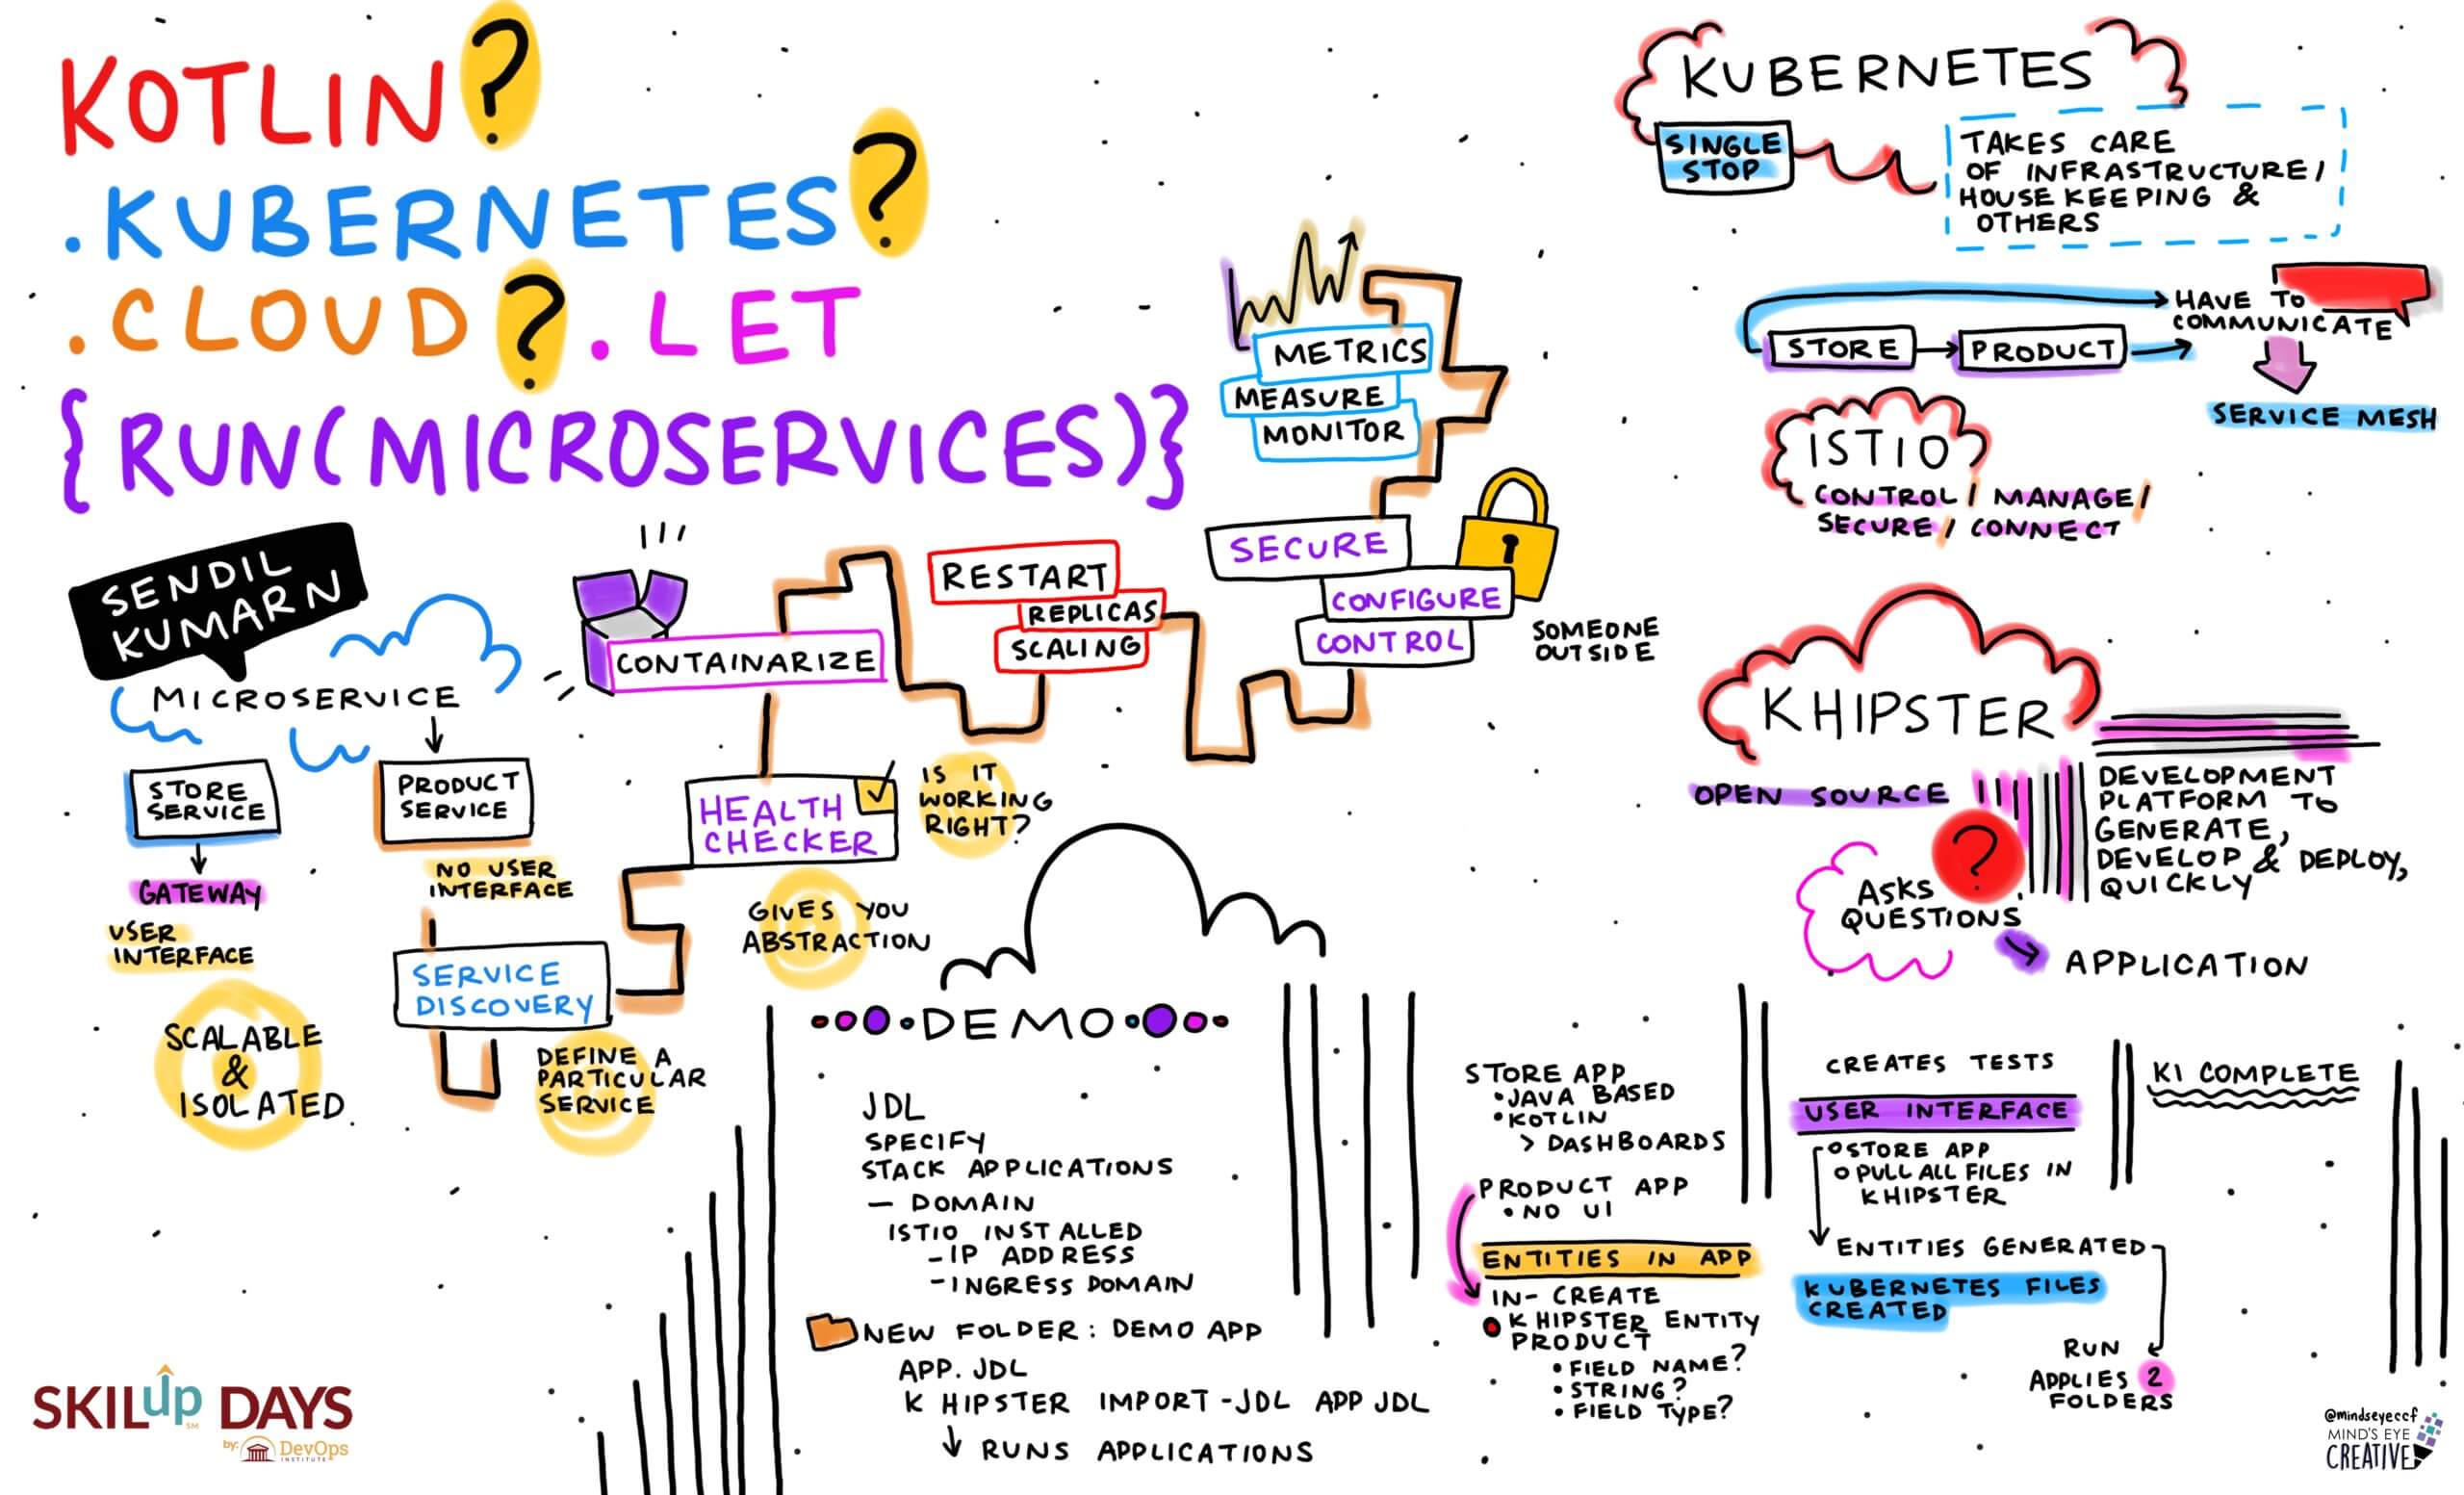 KOTLIN?
.KUBERNETES?
.CLOUD?.LET
{RUN(MICROSERVICES)}
SENDIL
KUMARN
MICROSERVICE
STORE
SERVICE
GATEWAY
USER
INTERFACE
SCALABLE
&
ISOLATED
PRODUCT
SERVICE
NO USER
INTERFACE
SERVICE
DISCOVERY
DEFINE A
PARTICULAR
SERVICE
HEALTH
CHECKER
IS IT
WORKING
RIGHT?
GIVES YOU
ABSTRACTION
CONTAINARIZE
RESTART
REPLICAS
SCALING
SECURE
CONFIGURE
CONTROL
SOMEONE
OUTSIDE
METRICS
MEASURE
MONITOR
KUBERNETES
SINGLE
STOP
TAKES CARE
OF INFRASTRUCTURE/
HOUSE KEEPING &
OTHERS
STORE
PRODUCT
HAVE TO
COMMUNICATE
SERVICE MESH
ISTIO
CONTROL / MANAGE/
SECURE / CONNECT
KHIPSTER
OPEN SOURCE
DEVELOPMENT
PLATFORM TO
GENERATE,
DEVELOP & DEPLOY,
QUICKLY
?
ASKS
QUESTIONS
APPLICATION
DEMO
JDL
SPECIFY
STACK APPLICATIONS
— DOMAIN
ISTIO INSTALLED
-IP ADDRESS
-INGRESS DOMAIN
NEW FOLDER: DEMO APP
APP. JDL
K HIPSTER IMPORT -JDL APP JDL
RUNS APPLICATIONS
STORE APP
•JAVA BASED
•KOTLIN
> DASHBOARDS
PRODUCT APP
•NO UI
ENTITIES IN APP
IN- CREATE
K HIPSTER ENTITY
PRODUCT
• FIELD NAME?
• STRING?
• FIELD TYPE?
CREATES TESTS
USER INTERFACE
STORE APP
PULL ALL FILES IN
KHIPSTER
ENTITIES GENERATED
KUBERNETES FILES
CREATED
RUN
APPLIES 2
FOLDERS
KI COMPLETE
SKILup DAYS
SM
by: DevOps
INSTITUTE
@mindseyeccf
MIND'S EYE
CREATIVE